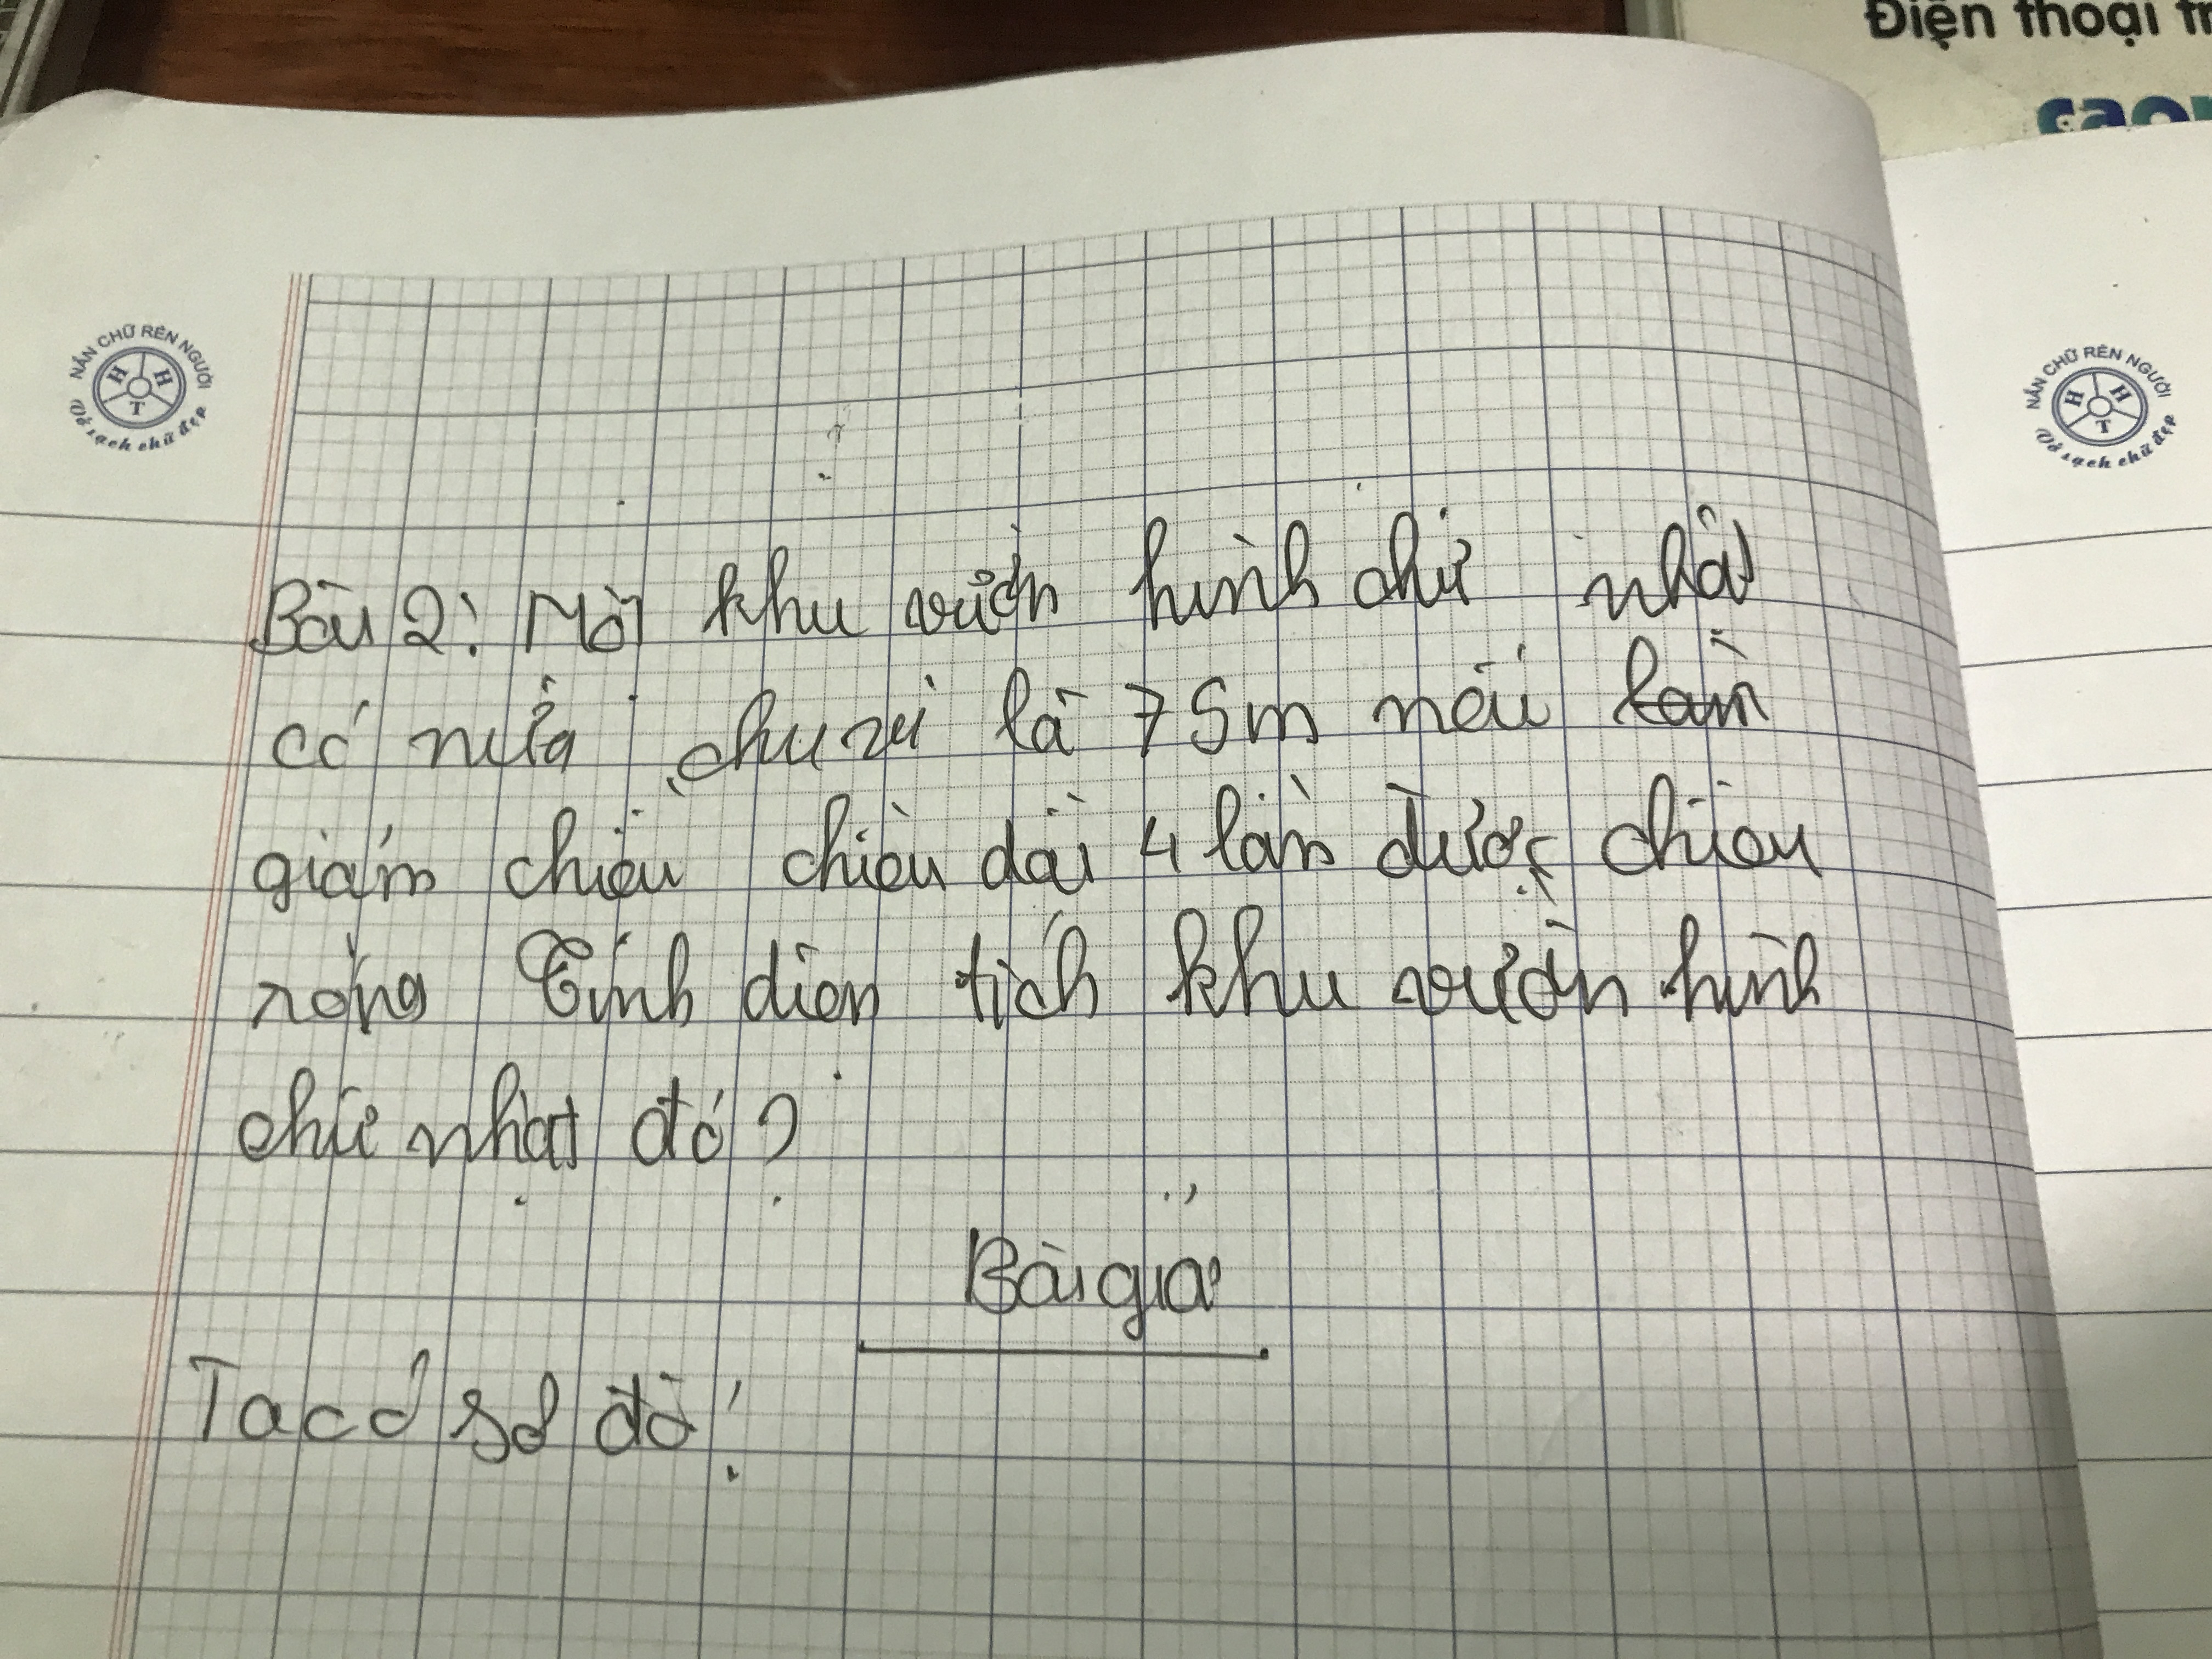 Điện thoại tr
NẮN CHỮ RÈN NGƯỜI
H H T
Vở sạch chữ đẹp
NẮN CHỮ RÈN NGƯỜI
H H T
Vở sạch chữ đẹp
Bài 2: Một khu vườn hình chữ nhật
có nửa chu vi là 75m nếu làm
giảm chiều chiều dài 4 lần được chiều
rộng Tính diện tích khu vườn hình
chữ nhật đó?
Bài giải
Ta có sơ đồ: